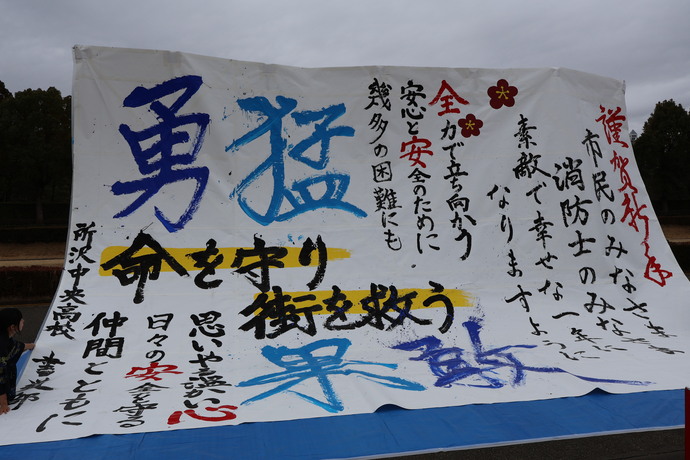 謹賀新年
市民のみなさま
消防士のみなさま
素敵で幸せな一年に
なりますように
勇猛
幾多の困難にも
安心と安全のために
全力で立ち向かう
命を守り
街を救う
果敢
思いやる温かい心
日々の安全を守る
仲間とともに
所沢中央高校
書道部